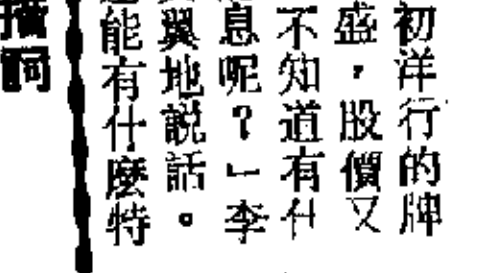 初洋行的牌
盛，股價又
不知道有什
息呢？」李
翼地說話。
能有什麼特
詞